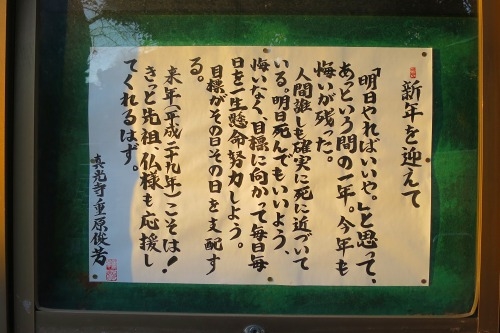 新年を迎えて
「明日やればいいや。」と思って、
あっという間の一年。今年も
悔いが残った。
人間誰しも確実に死に近づいて
いる。明日死んでもいいよう、
悔いなく、目標に向かって毎日毎
日を一生懸命努力しよう。
目標がその日その日を支配す
る。
来年（平成二十九年）こそは！
きっと先祖、仏様も応援し
てくれるはず。
真光寺重原俊芳